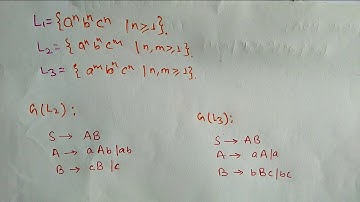 L₁={aⁿbⁿcⁿ | n⩾1}.
L₂={ aⁿbⁿcᵐ | n,m⩾1}.
L₃={ aᵐbⁿcⁿ | n,m⩾1}.
G(L₂):
S → AB
A → aAb|ab
B → cB|c
G(L₃):
S → AB
A → aA|a
B → bBc|bc